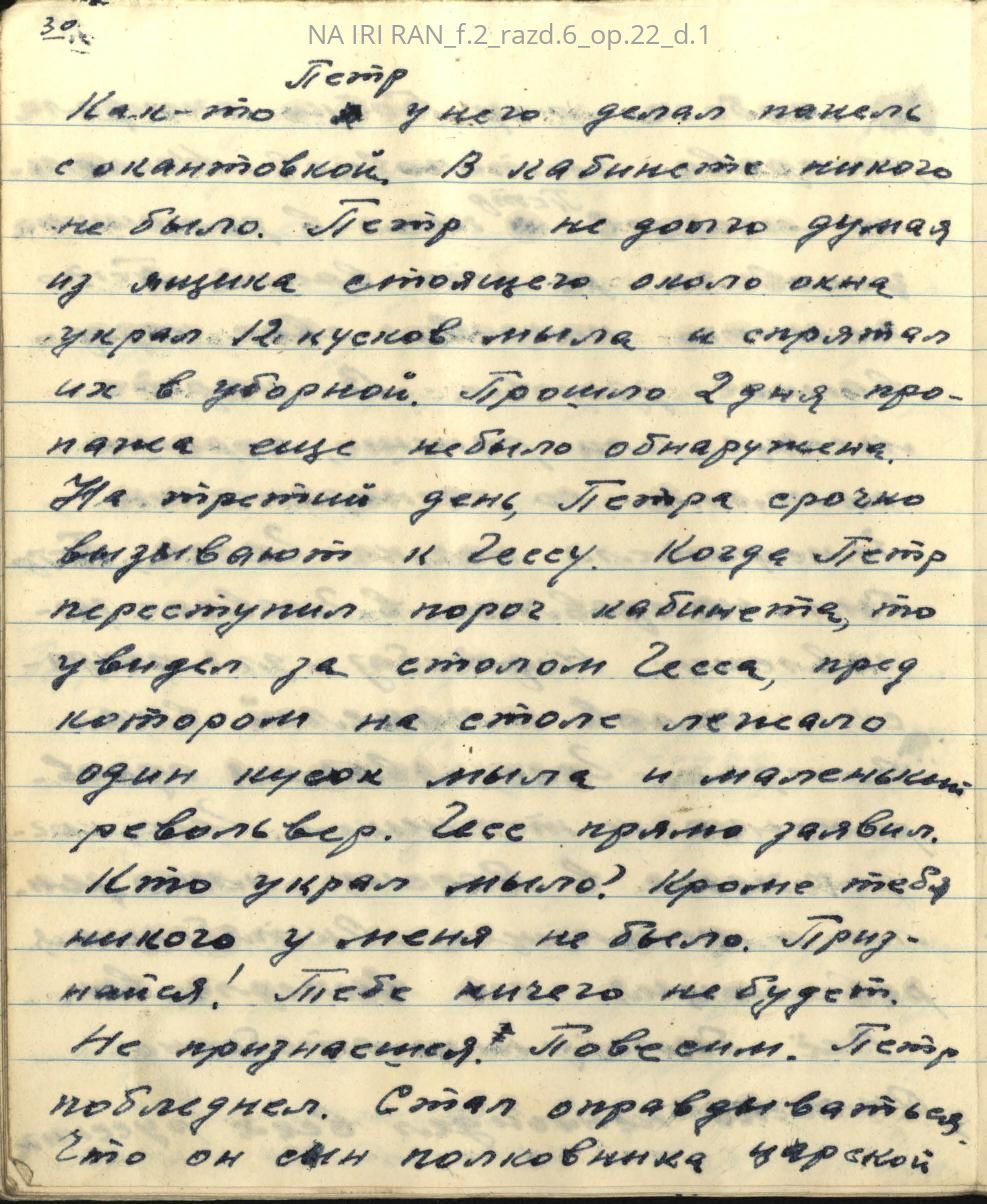 NA IRI RAN_f.2_razd.6_op.22_d.1
30
Петр
Как-то у него делал панель
с окантовкой. В кабинете никого
не было. Петр не долго думая
из ящика стоящего около окна
украл 12 кусков мыла и спрятал
их в уборной. Прошло 2 дня про-
пажа еще небыло обнаружена.
На третий день, Петра срочно
вызывают к Гессу. Когда Петр
переступил порог кабинета, то
увидел за столом Гесса, пред
котором на столе лежало
один кусок мыла и маленький
револьвер. Гесс прямо заявил.
Кто украл мыло? Кроме тебя
никого у меня не было. Приз-
найся! Тебе ничего не будет.
Не признаешся. Повесим. Петр
побледнел. Стал оправдываться,
Что он сын полковника царской